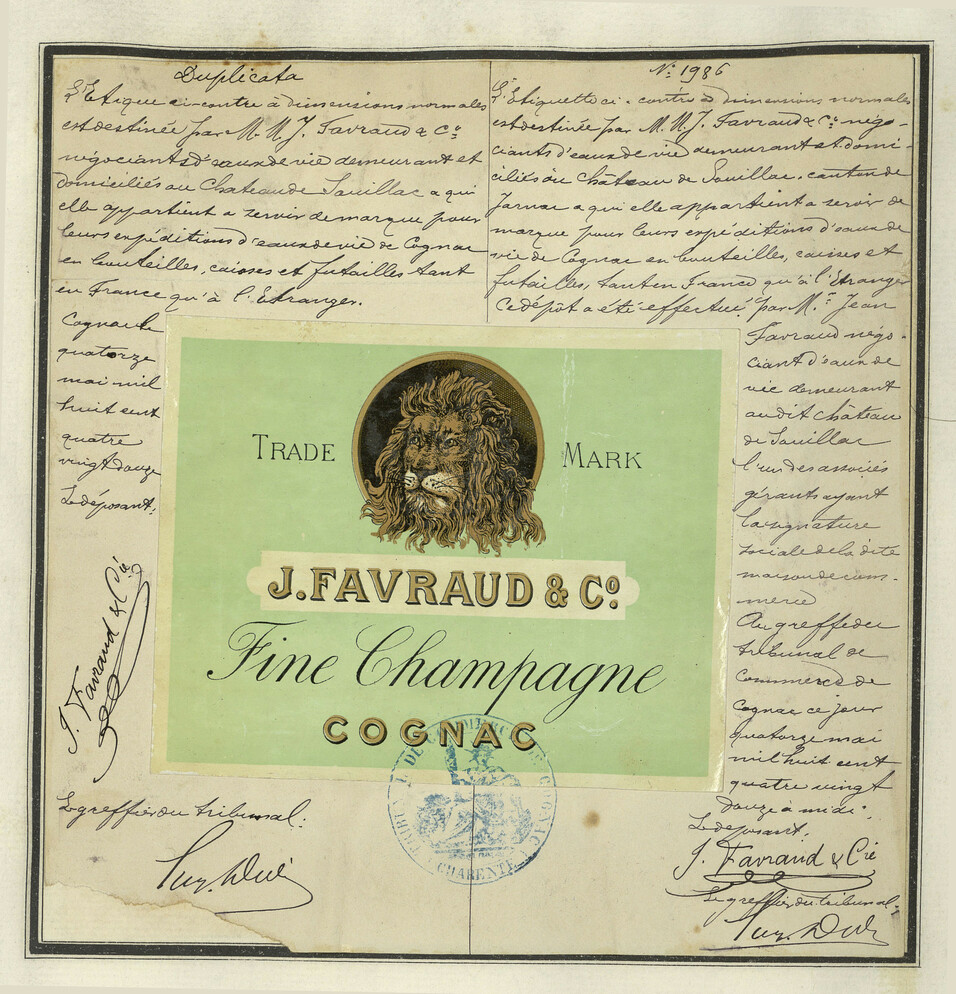 Duplicata
L'Etique ci-contre à dimensions normales
est destinée par M.M. J. Favraud & Cº
négociants d'eaux de vie demeurant et
domiciliés au Chateau de Souillac a qui
elle appartient a servir de marque pour
leurs expéditions d'eaux de vie de Cognac
en bouteilles, caisses et futailles tant
en France qu'à l'Etranger.
Cognac le
quatorze
mai mil
huit cent
quatre
vingt douze
Le déposant:
J. Favraud & Cie
Le greffier du tribunal:
Nº 1986
L'Etiquette ci-contre à dimensions normales
est destinée par M.M. J. Favraud & Cº négo-
ciants d'eaux de vie demeurant et domi-
ciliés au château de Souillac, canton de
Jarnac a qui elle appartient a servir de
marque pour leurs expéditions d'eaux de
vie de Cognac en bouteilles, caisses et
futailles, tant en France qu'à l'Etranger
Ce dépôt a été effectué par Mr Jean
Favraud négo-
ciant d'eaux de
vie demeurant
au dit château
de Souillac
l'un des associés
gérants ayant
la signature
sociale de la dite
maison de com-
merce
Au greffe du
tribunal de
Commerce de
Cognac ce jour
quatorze mai
mil huit cent
quatre vingt
douze à midi.
Le déposant:
J. Favraud & Cie
Le greffier du tribunal:
TRADE MARK
J. FAVRAUD & Cº.
Fine Champagne
COGNAC
TRIB. DE COMMERCE DE COGNAC
(CHARENTE)